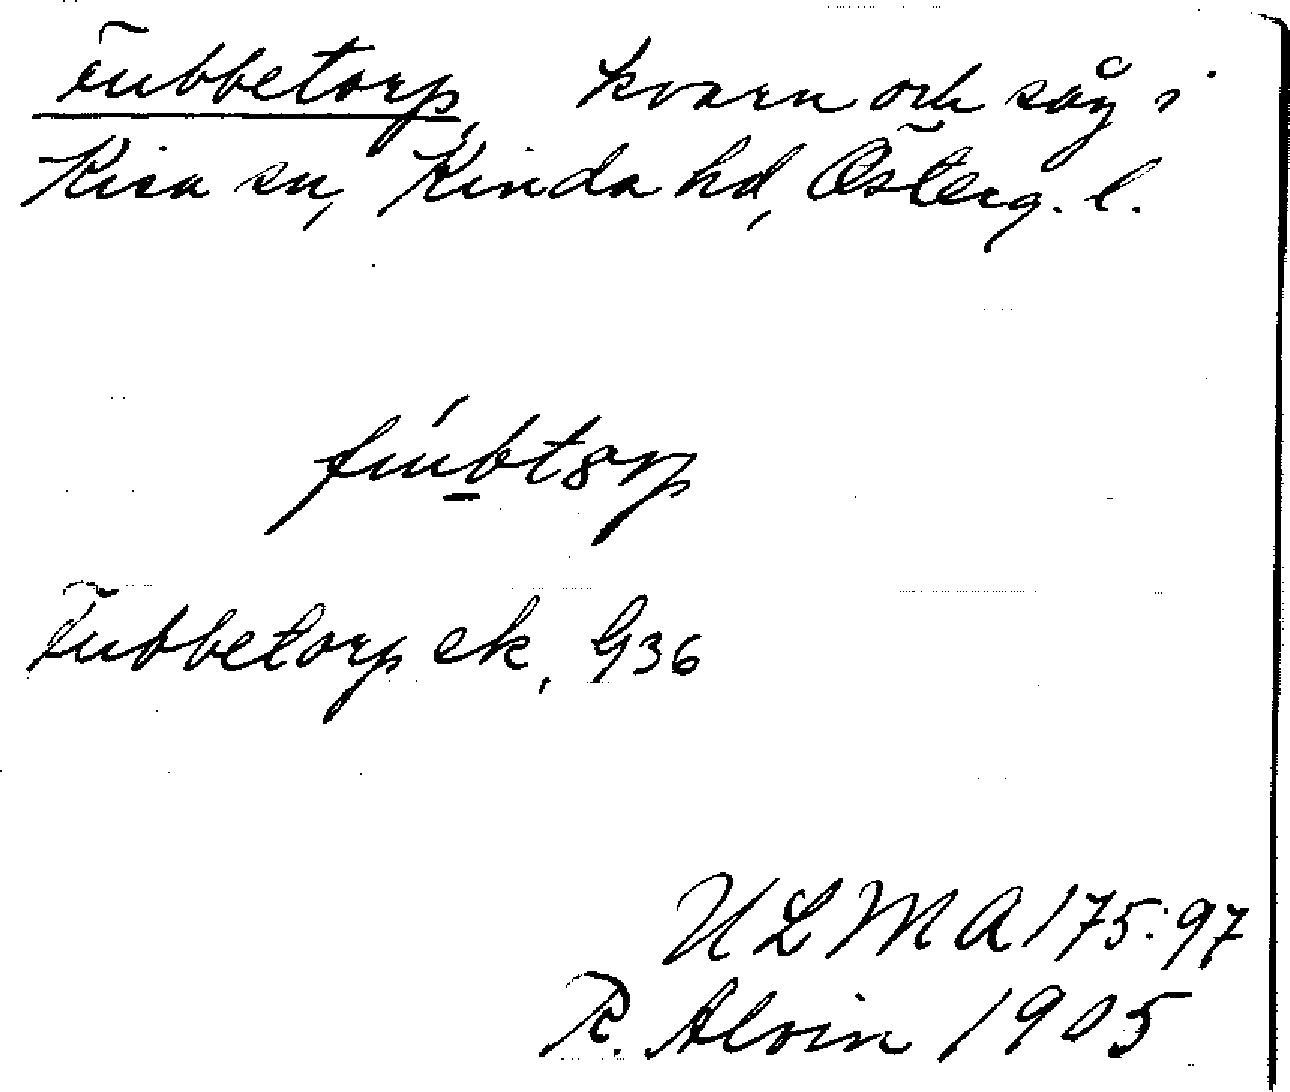 Fubbetorp, kvarn och såg i
Kisa sn, Kinda hd, Österg. l.
Fubbetorp ek, G36
ULMA 175:97
R. Alvin 1905